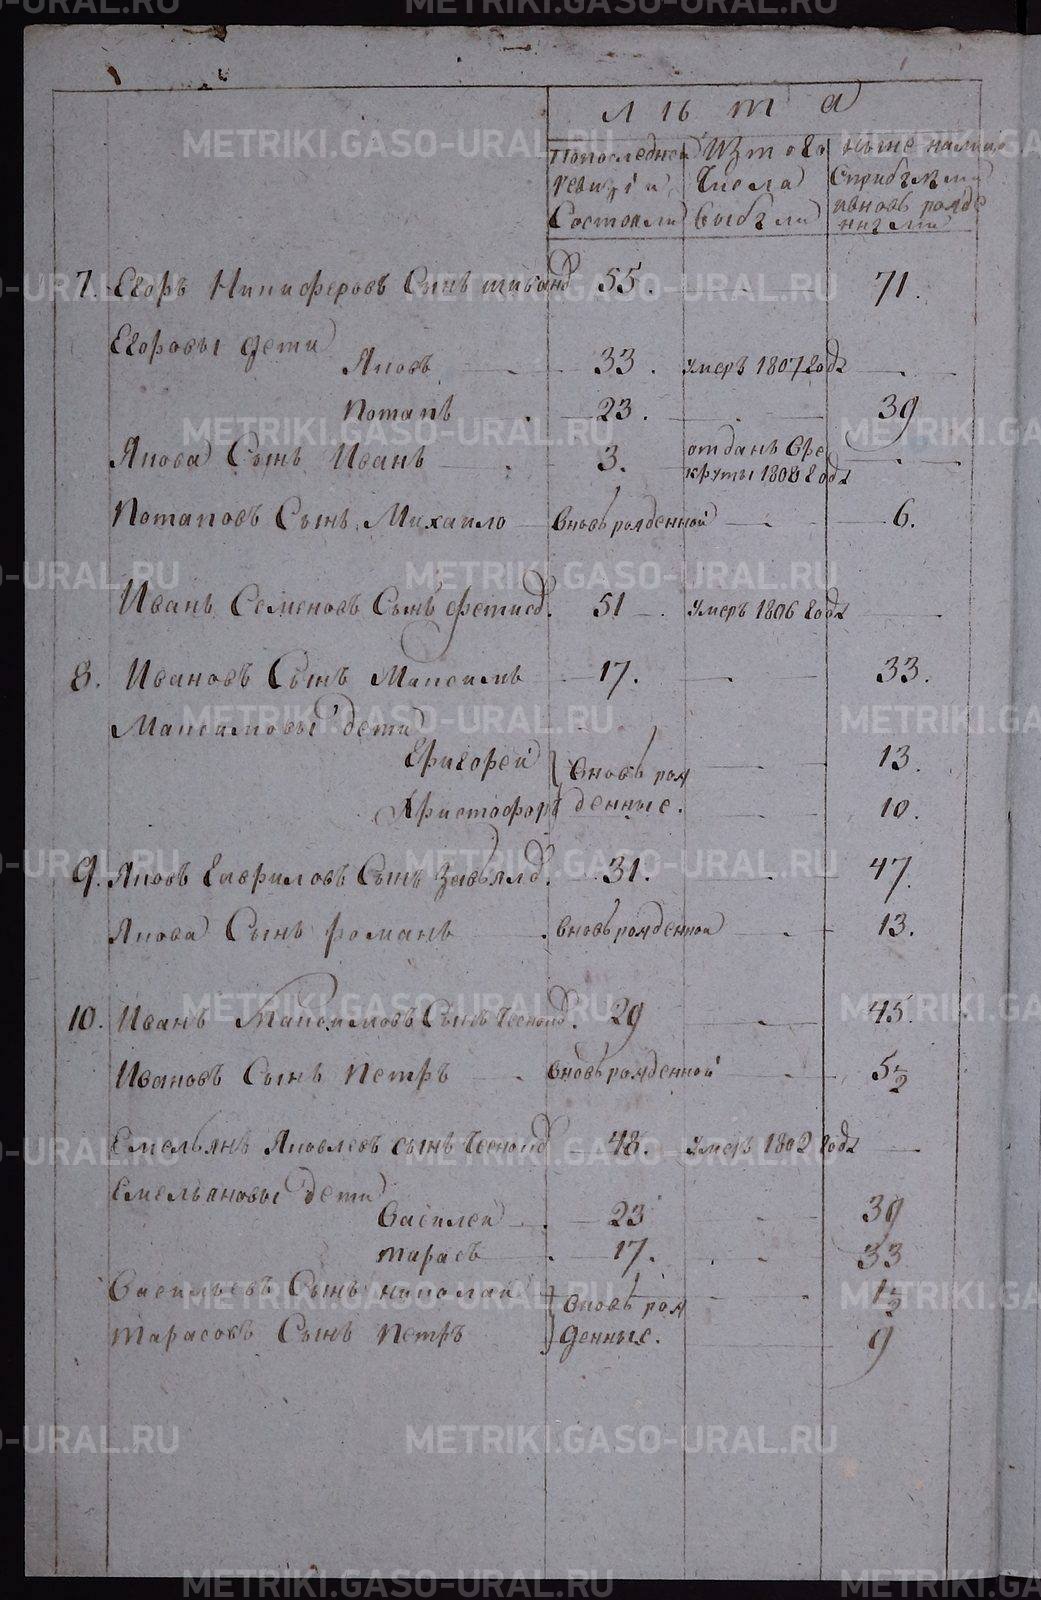 лѣта
Попоследней ревизiи Состояли
Изтого Числа Выбыли
Ныне налицо Сприбылми ивновь рожденными
7. Егоръ Никифоровъ Сынъ 55. 71.
Егоровы дети
Яковъ 33. умеръ 1807 года
Потапъ 23. 39
Якова Сынъ Иванъ 3. отданъ Вре
круты 1808 года
Потаповъ Сынъ Михаило Вновь рожденной 6.
Иванъ Семеновъ Сынъ Фетисов 51 умеръ 1806 года
8. Ивановъ Сынъ Максимъ 17. 33.
Максимовы дети
Григорей Вновь рож 13.
Христофоръ денные. 10.
9. Яковъ Гавриловъ Сынъ Завьялов. 31. 47.
Якова Сынъ Романъ Вновь рожденной 13.
10. Иванъ Максимовъ Сынъ Чесноков. 29 45.
Ивановъ Сынъ Петръ Вновь рожденной 5½
Емельянъ Яковлевъ сынъ Чесноков 48. умеръ 1802 года
Емельяновы дети
Василей 23 39
Тарасъ 17. 33
Васильевъ Сынъ николай Вновь рож 1½
Тарасовъ Сынъ Петръ денные. 9
METRIKI.GASO-URAL.RU